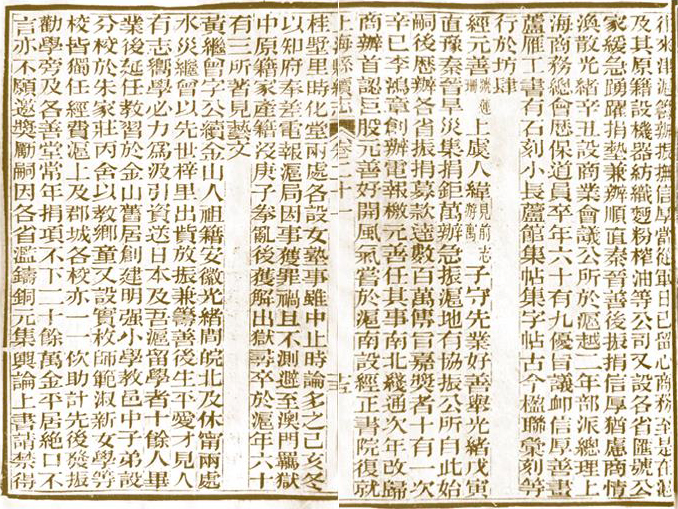 籌辦振撫信厚當
及其原籍設機器紡織麵粉榨油等公司又設各省匯號公
家緩急踴躍捐墊兼辦順直秦晉善後振捐信厚猶慮商情
渙散光緒辛丑設商業會議公所於滬越二年部派總理上
海商務總會歷保道員卒年六十有九優旨議卹信厚善畫
蘆雁工書有石刻小長蘆館集帖集字帖古今楹聯彙刻等
行於坊肆
經元善號蓮珊上虞人緯見前志游寓子守先業好善舉光緒戊寅
直豫秦晉旱災集捐鉅萬辦急振滬地有協振公所自此始
嗣後歷辦各省振捐募款達數百萬傳旨嘉獎者十有一次
辛巳李鴻章創辦電報檄元善任其事南北綫通次年改歸
商辦首認巨股元善好開風氣嘗於滬南設經正書院復就
上海縣續志 卷二十一 十五
桂墅里時化堂兩處各設女塾事雖中止時論多之己亥冬
以知府奉差電報滬局因事獲罪禍且不測避至澳門羈獄
中原籍家產籍沒庚子拳亂後獲解出獄尋卒於滬年六十
有三所著見藝文
黃繼曾字公續金山人祖籍安徽光緒間皖北及休甯兩處
水災繼曾以先世梓里出貲放振兼籌善後生平愛才見人
有志嚮學必力為汲引資送日本及吾滬留學者十餘人畢
業後延任教習於金山舊居創建明强小學教邑中子弟設
分校於朱家莊丙舍以教鄉童又設實枚師範淑新女學等
校皆獨任經費滬上及郡城各校亦一一佽助計先後襄振
勸學旁及各善堂常年捐項不下二十餘萬金平居絕口不
言亦不願邀獎勵嗣因各省濫鑄銅元集輿論上書請禁得